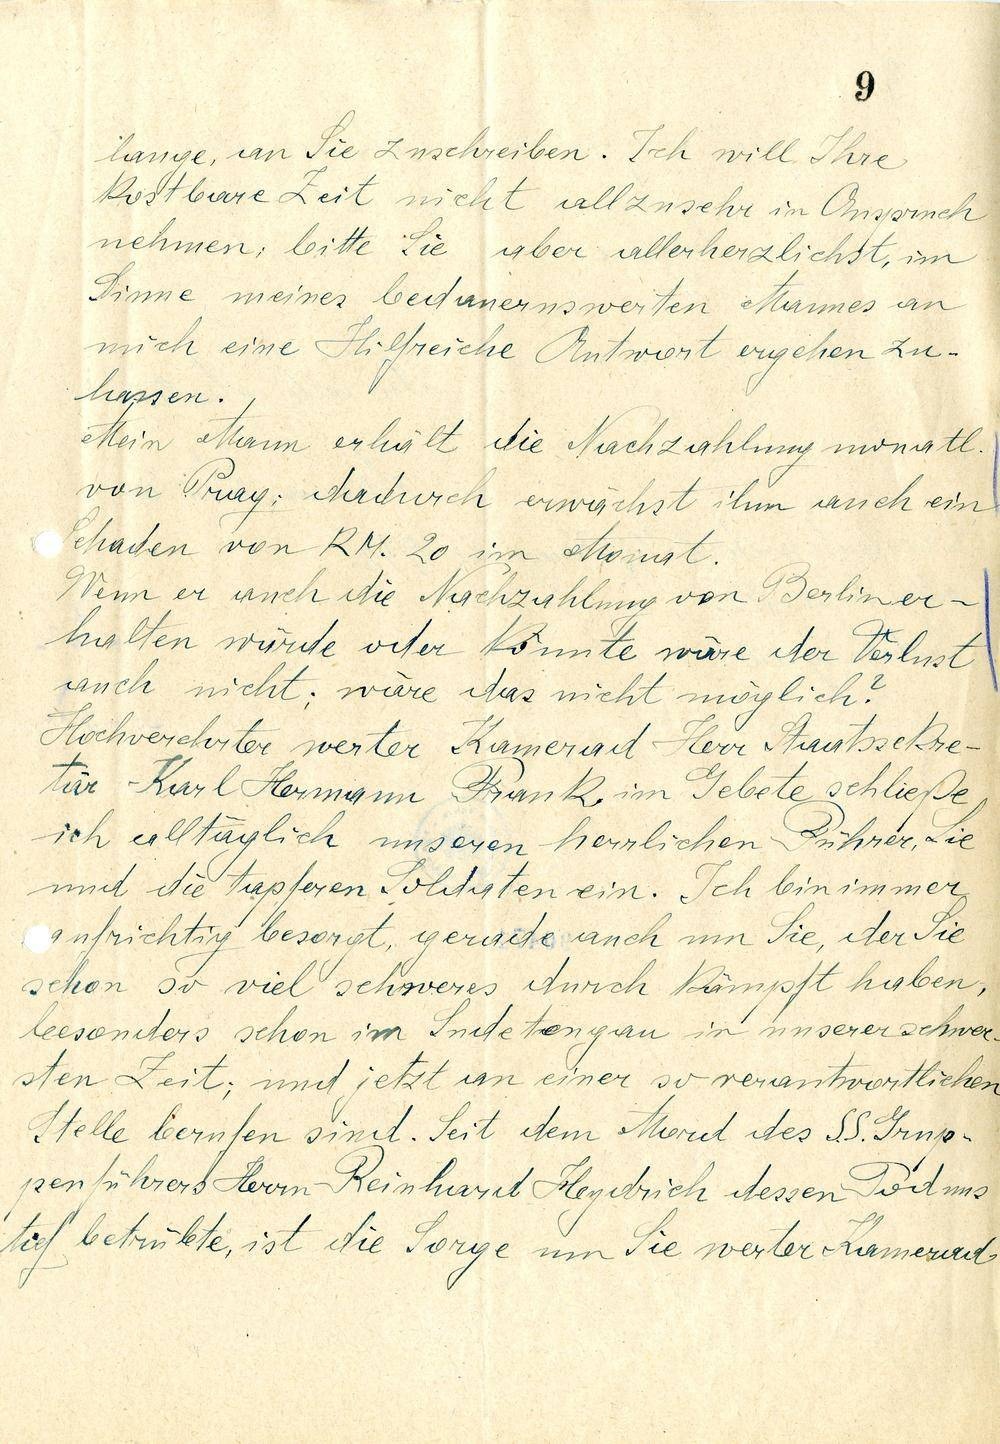 9
lange, an Sie zuschreiben. Ich will Ihre
kostbare Zeit nicht allzusehr in Anspruch
nehmen; bitte Sie aber allerherzlichst, im
Sinne meines bedauernswerten Mannes an
mich eine Hilfreiche Antwort ergehen zu-
lassen.
Mein Mann erhält die Nachzahlung monatl.
von Prag; dadurch erwächst ihm auch ein
Schaden von RM. 20 im Monat.
Wenn er auch die Nachzahlung von Berlin er-
halten würde oder könnte wäre der Verlust
auch nicht; wäre das nicht möglich?
Hochverehrter werter Kamerad Herr Staatssekre-
tär Karl Hermann Frank, im Gebete schließe
ich alltäglich unseren herrlichen Führer, Sie
und die tapferen Soldaten ein. Ich bin immer
aufrichtig besorgt, gerade auch um Sie, der Sie
schon so viel schweres durch kämpft haben,
beesonders schon im Sudetengau in unserer schwer-
sten Zeit; und jetzt an einer so verantwortlichen
Stelle berufen sind. Seit dem Mord des S.S. Grup-
penführers Herrn Reinhard Heydrich dessen Tod uns
tief betrübte, ist die Sorge um Sie werter Kamerad